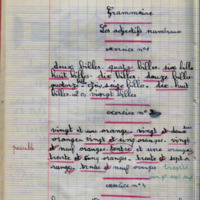 Grammaire
Les adjectifs numéraux
exercice n°1
deux billes, quatre billes, six billes
huit billes. dix billes. douze billes
quatorze billes, seize billes, dix huit
billes, vingt billes
exercice n° 2
vingt et une oranges, vingt et deux
oranges vingt et cinq oranges. vingt
neuf oranges. trente et une oranges
trente et cinq oranges. trente et sept o
ranges, trente et neuf oranges
exercice n°3